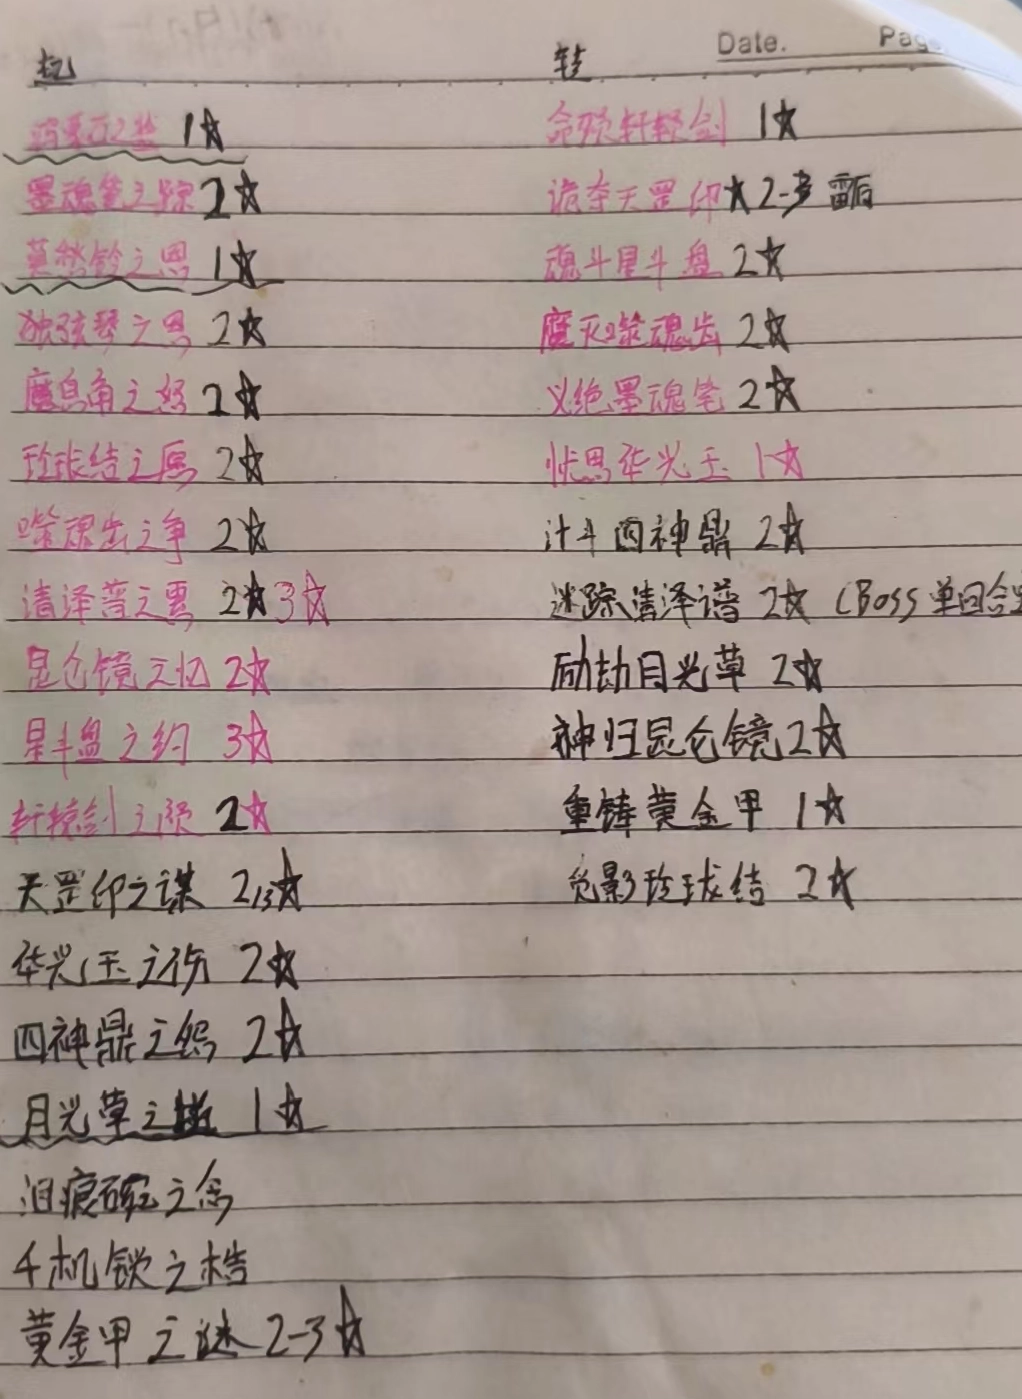 起
Date.
Page
转
之 1☆
墨魂笔之踪 2☆
莫愁铃之恩 1☆
独弦琴之思 2☆
魔息角之怒 2☆
玲珑结之愿 2☆
噬魂齿之争 2☆
清泽普之惠 2☆3☆
昆仑镜之忆 2☆
星斗盘之约 3☆
轩辕剑之颂 2☆
天罡印之谋 2/3☆
华光玉之伤 2☆
四神鼎之怨 2☆
月光草之 1☆
泪痕碗之念
千机锁之梏
黄金甲之谜 2-3☆
命殒轩辕剑 1☆
诡夺天罡印☆2-3 雷后
魂斗星斗盘 2☆
魔灭噬魂齿 2☆
义绝墨魂笔 2☆
恍思华光玉 1☆
计斗四神鼎 2☆
迷踪清泽谱 2☆（Boss 单回合
励劫月光草 2☆
神归昆仑镜 2☆
重铸黄金甲 1☆
觅影玲珑结 2☆